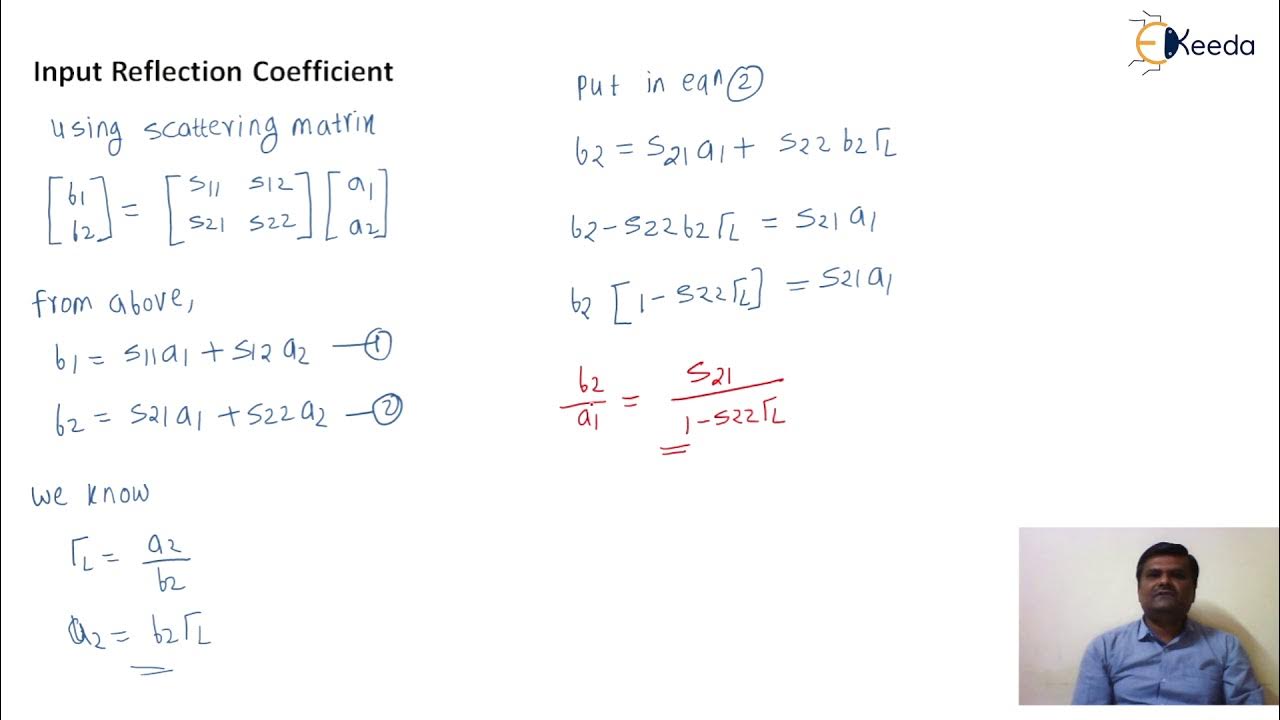 Input Reflection Coefficient
using scattering matrix
[b1 b2] = [s11 s12 s21 s22] [a1 a2]
from above,
b1 = s11a1 + s12a2 —①
b2 = s21a1 + s22a2 —②
we know
ΓL = a2/b2
a2 = b2ΓL
EKeeda
Put in eqn ②
b2 = s21a1 + s22b2ΓL
b2 - s22b2ΓL = s21a1
b2 [1 - s22ΓL] = s21a1
b2/a1 = s21/1 - s22ΓL